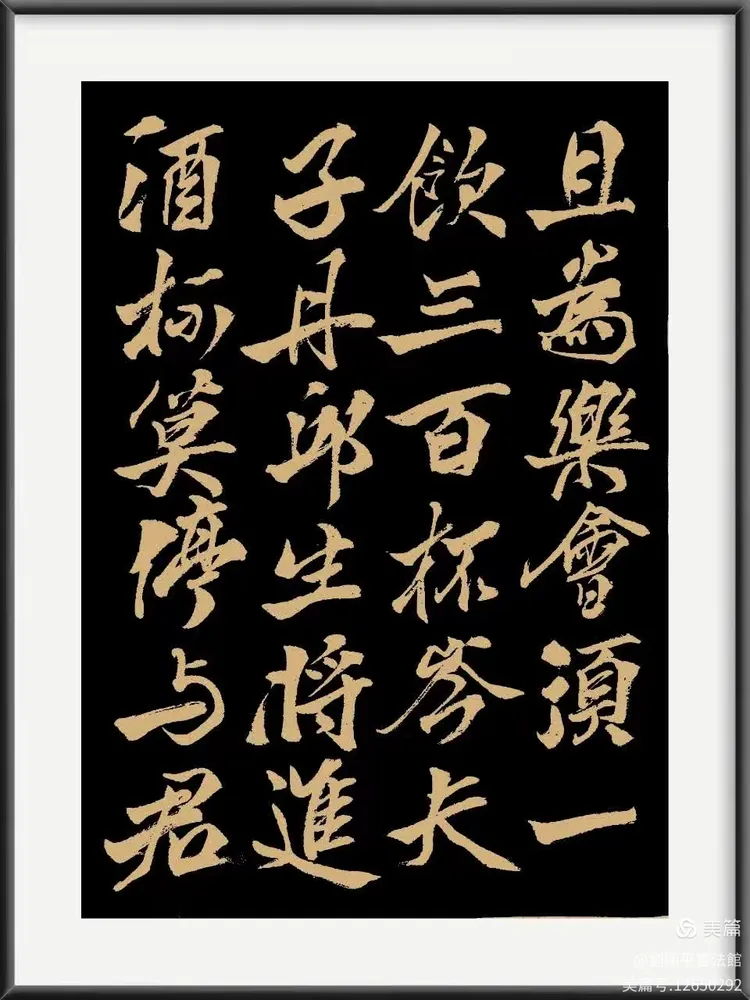 且為樂會須一
飲三百杯岑夫
子丹邱生將進
酒杯莫停与君
美篇
美篇号:12650292